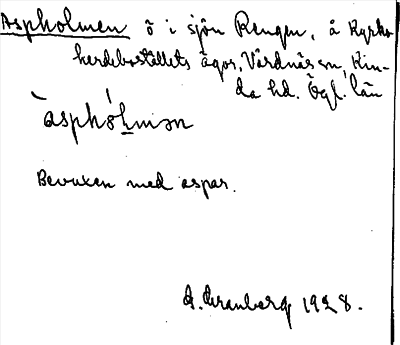 Aspholmen ö i sjön Rengen, å Kyrko-
herdebostället ägor, Vårdnäs sn, Kin-
da hd. Ögl. län
àsphól̲mən
Bevuxen med aspar.
A. Granberg 1928.